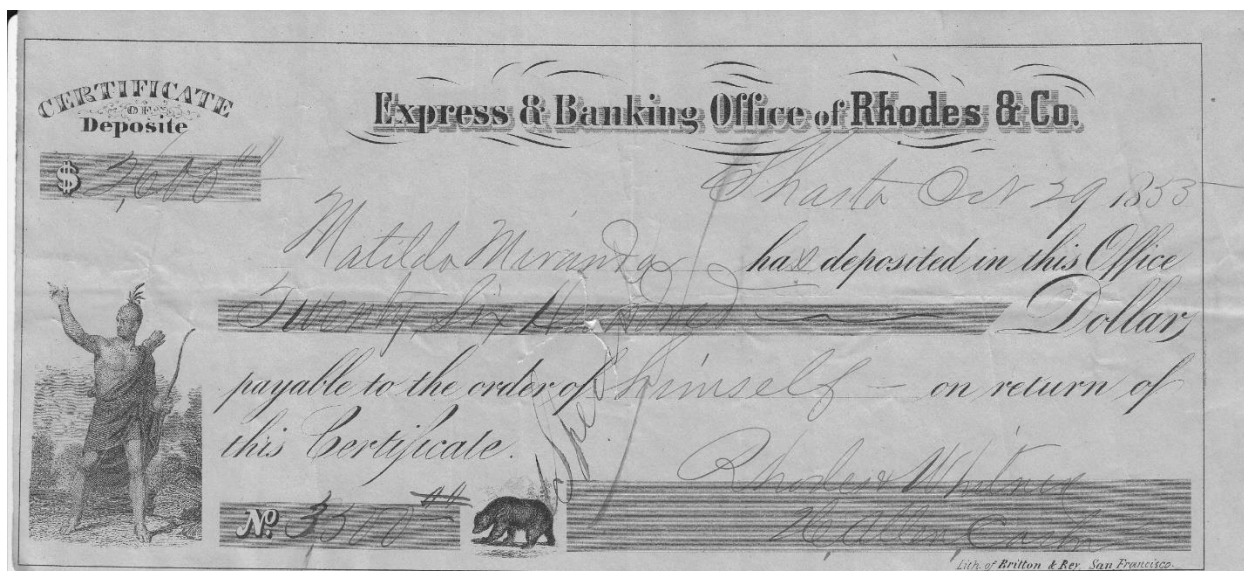 CERTIFICATE
OF
Deposite
Express & Banking Office of Rhodes & Co.
$ 2,600 00
Shasta Oct 29 1853
Matilda Miranda has deposited in this Office
Twenty Six Hundred Dollars
payable to the order of himself on return of
this Certificate.
Rhodes & Whitney
No. 3500 00
H, Allen, Cash
Lith. of Britton & Rey. San Francisco.